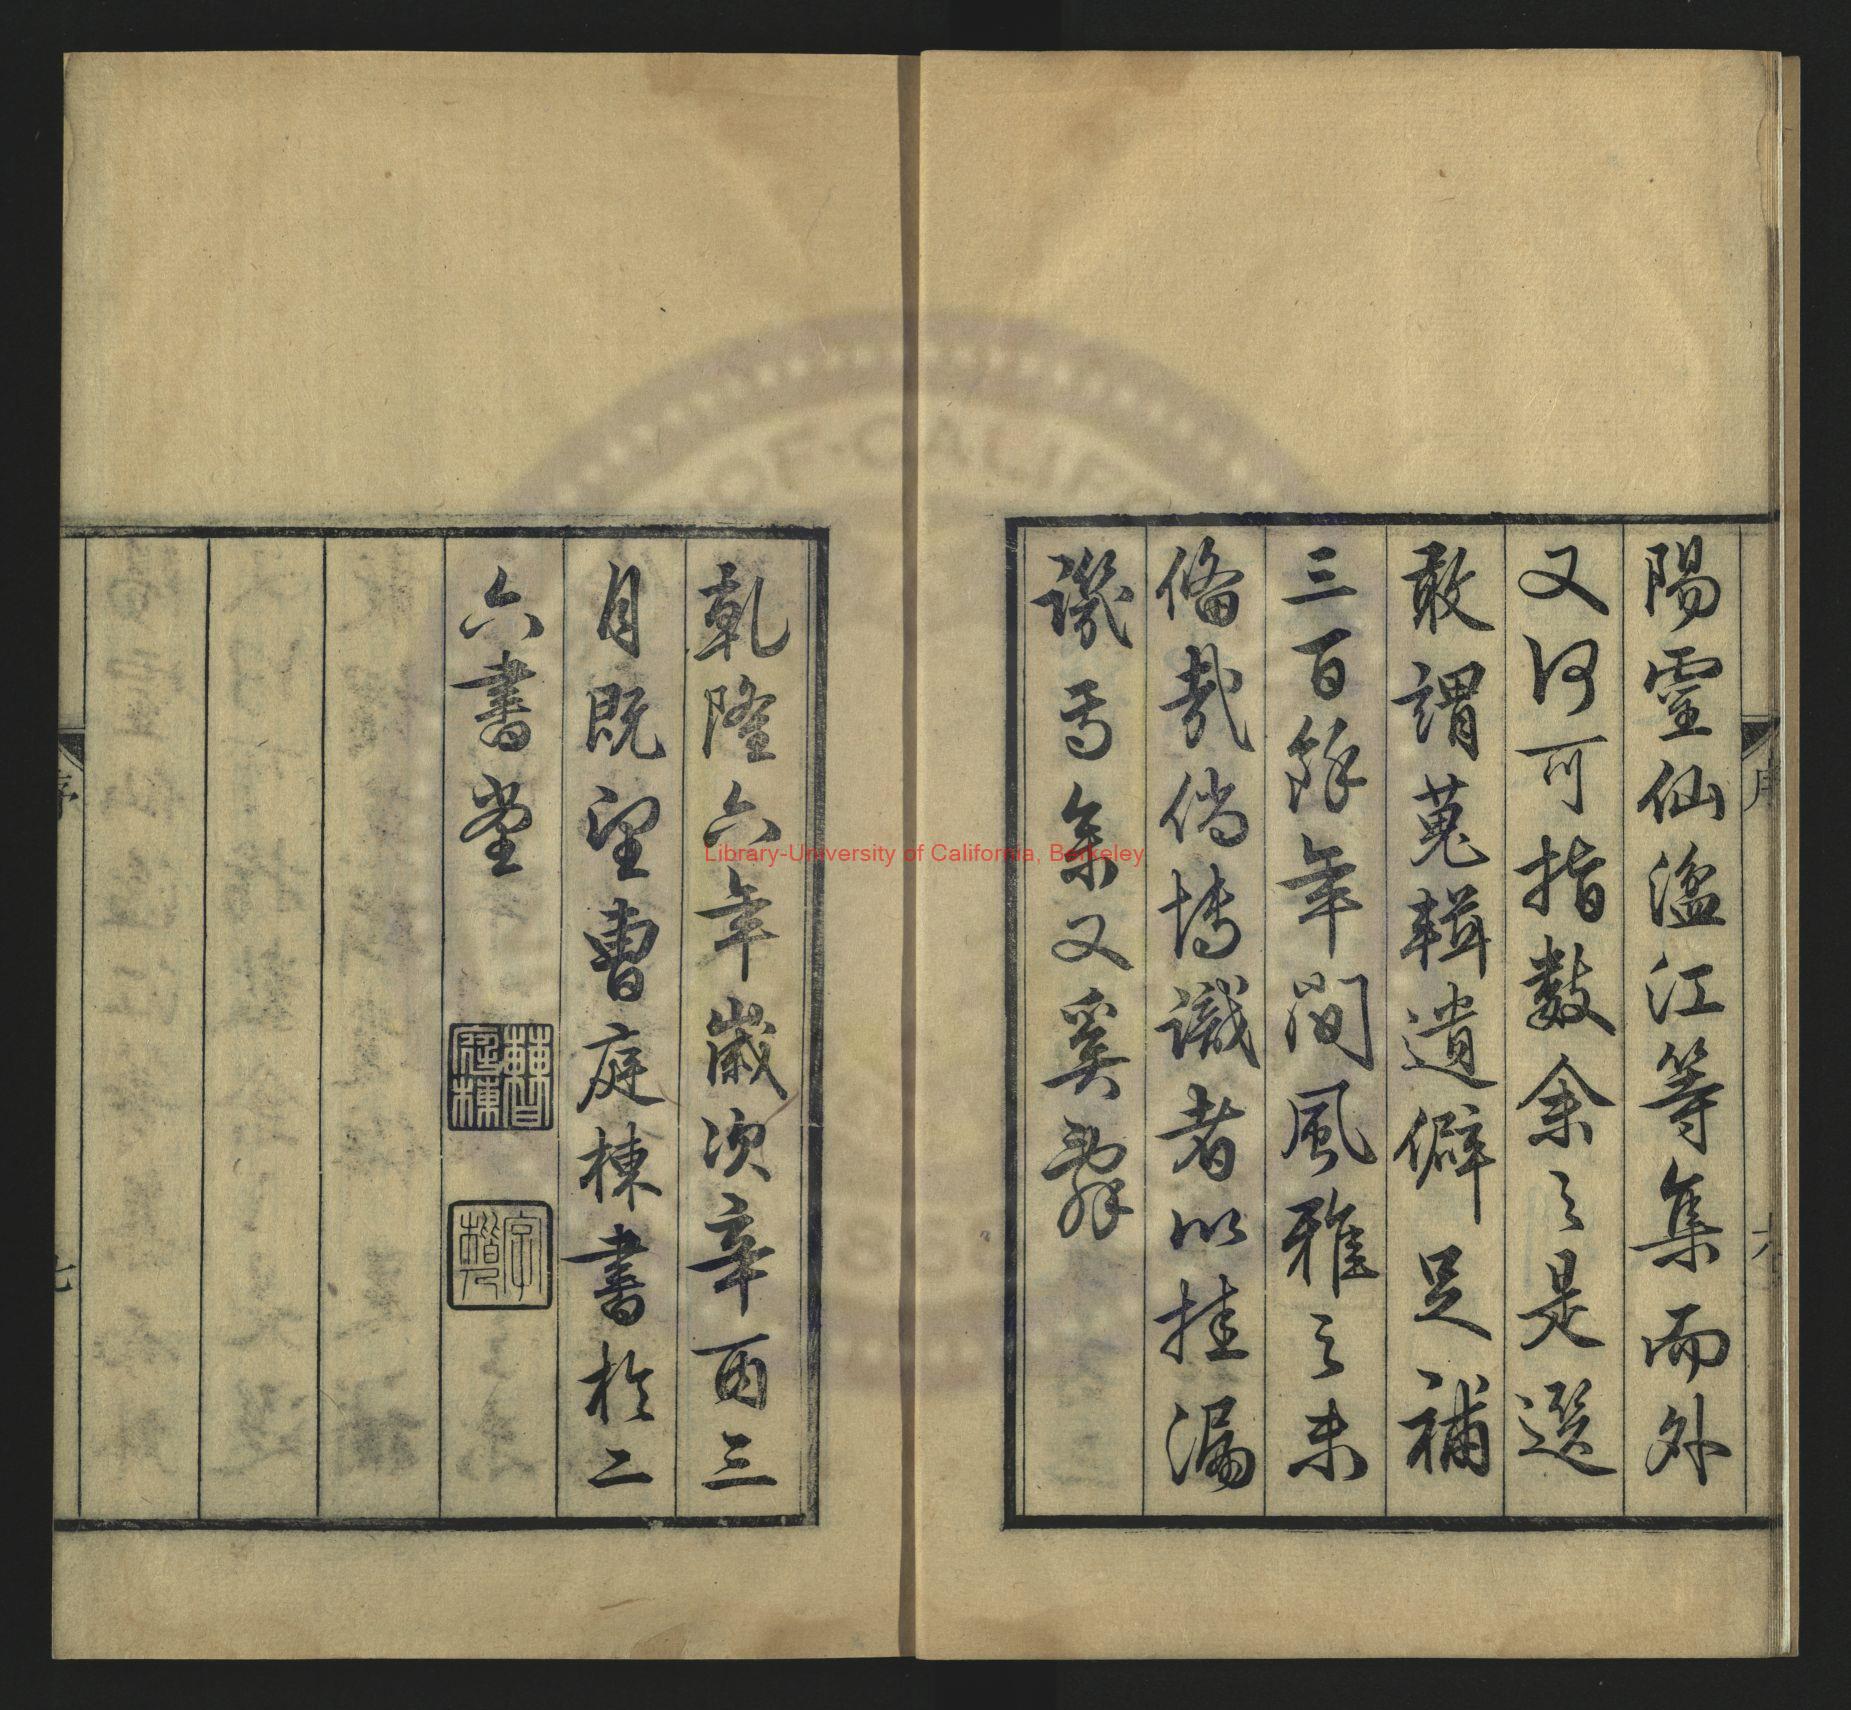 陽靈仙湓江等集而外
又何可指數余之是選
敢謂蒐輯遺僻足補
三百餘年間風雅之未
備哉倘博識者以挂漏
譏焉余又奚辭
序
六
乾隆六年歲次辛酉三
月既望曹庭棟書於二
六書堂
曹庭棟
字楷人
序
七
Library-University of California, Berkeley
OF·CALIF